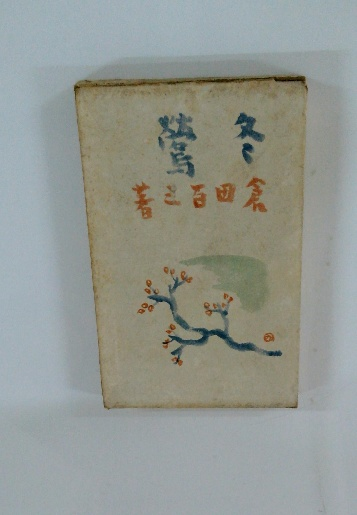 冬鶯
倉田百三著